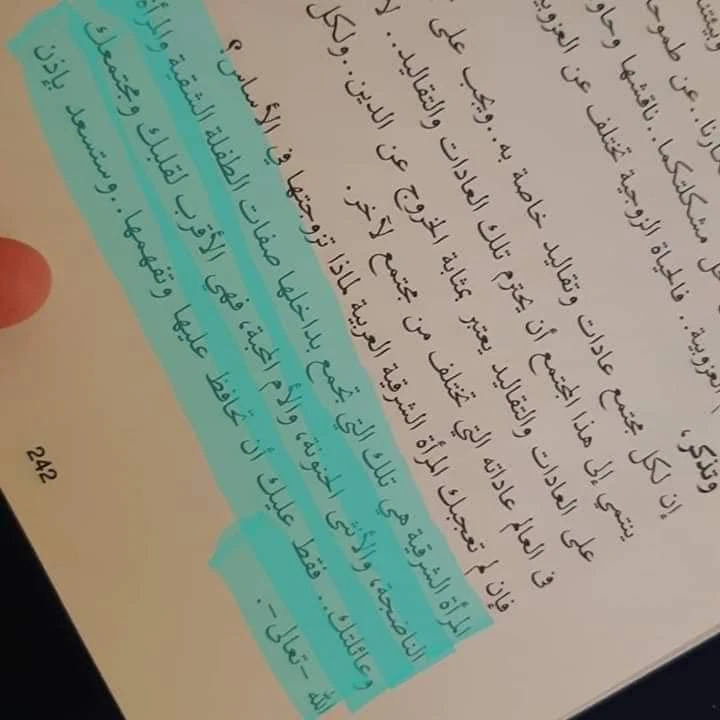 مشكلتكما..ناقشها
العزوبية.. فالحياة الزوجية تختلف عن
وتذكر،
إن لكل مجتمع عادات وتقاليد خاصة به..ويجب على
ينتمي إلى هذا المجتمع أن يحترم تلك العادات والتقاليد..
على العادات والتقاليد يعتبر بمثابة الخروج عن الدين..ولكل
فى العالم عاداته التي تختلف من مجتمع لآخر.
فإن لم تعجبك المرأة الشرقية العربية لماذا تزوجتها في الأساس؟
المرأة الشرقية هي تلك التي تجمع بداخلها صفات الطفلة الشقية والمرأة
الناضجة، والأنثى الحنونة، والأم المحبة، فهي الأقرب لقلبك ومجتمعك
وعائلتك.. فقط عليك أن تحافظ عليها وتفهمها..وستسعد بإذن
الله -تعالى-.
242